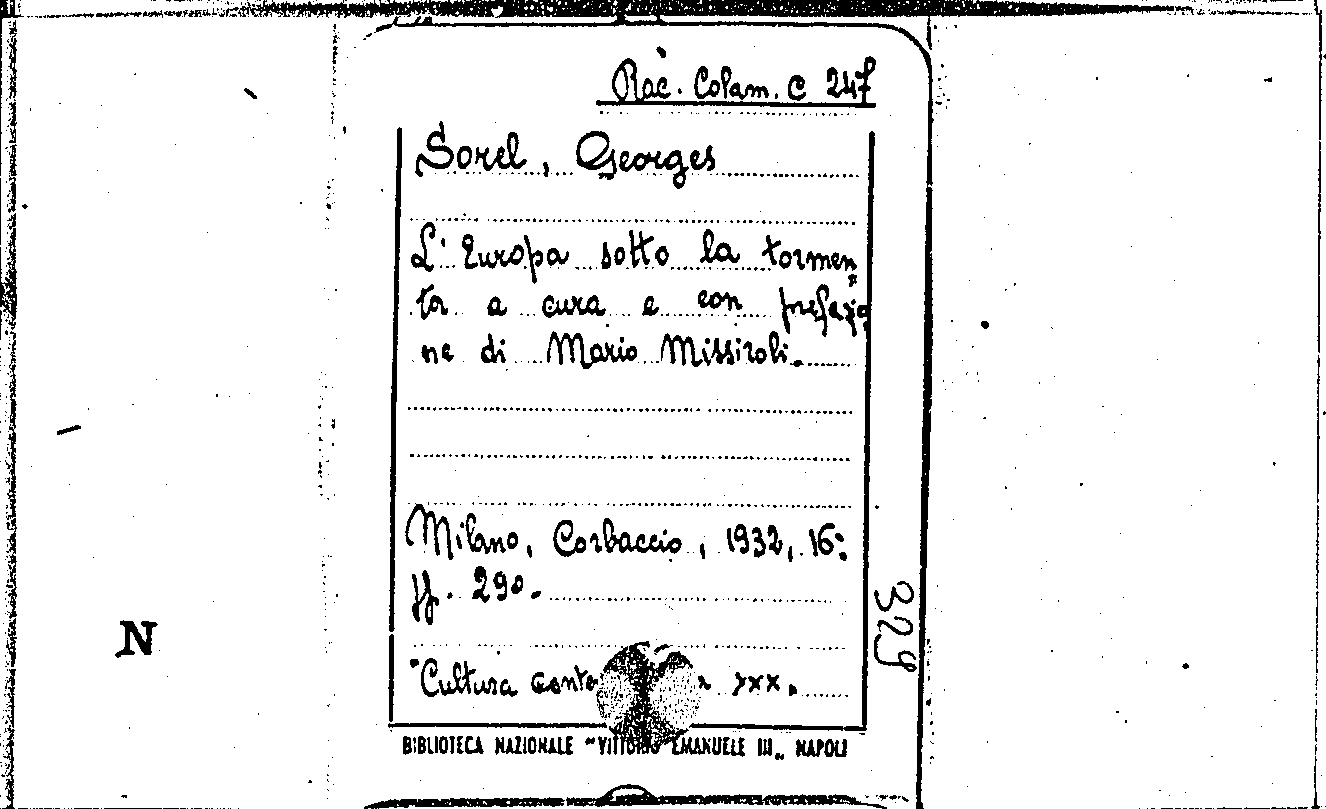 Rac. Colam. C 247
Sorel, Georges
L'Europa sotto la tormen
ta a cura e con prefazio
ne di Mario Missiroli.
Milano, Corbaccio, 1932, 16º
pp. 290.
"Cultura conte a XXX"
329
N
BIBLIOTECA NAZIONALE "VITTORIO EMANUELE III" NAPOLI